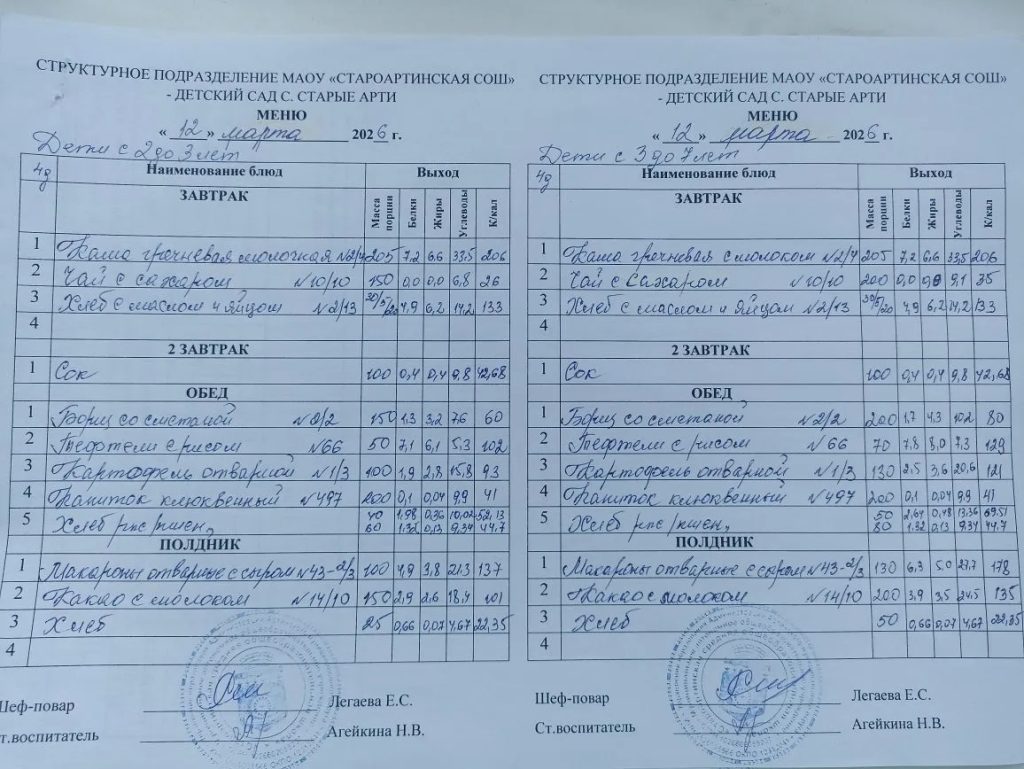 СТРУКТУРНОЕ ПОДРАЗДЕЛЕНИЕ МАОУ «СТАРОАРТИНСКАЯ СОШ»
- ДЕТСКИЙ САД С. СТАРЫЕ АРТИ
МЕНЮ
« 12 » марта 2026 г.
Дети с 2 до 3 лет
4д Наименование блюд Выход
ЗАВТРАК Масса порции Белки Жиры Углеводы К/кал
1 Каша гречневая молочная №2/4 205 7,2 6,6 33,5 206
2 Чай с сахаром №10/10 150 0,0 0,0 6,8 26
3 Хлеб с маслом и яйцом №2/13 30/5/20 4,9 6,2 14,2 133
4
2 ЗАВТРАК
1 Сок 100 0,4 0,4 9,8 42,68
ОБЕД
1 Борщ со сметаной №2/2 150 1,3 3,2 7,6 60
2 Тефтели с рисом №66 50 7,1 6,1 5,3 102
3 Картофель отварной №1/3 100 1,9 2,8 15,8 93
4 Напиток клюквенный №497 200 0,1 0,04 9,9 41
5 Хлеб рж/пшен, 40 1,98 0,36 10,02 52,13
60 1.32 0,13 9,34 44,7
ПОЛДНИК
1 Макароны отварные с сыром №43-2/3 100 4,9 3,8 21,3 137
2 Какао с молоком №14/10 150 2,9 2,6 18,4 101
3 Хлеб 25 0,66 0,07 4,67 22,35
4
Шеф-повар Легаева Е.С.
Ст.воспитатель Агейкина Н.В.
СТРУКТУРНОЕ ПОДРАЗДЕЛЕНИЕ МАОУ «СТАРОАРТИНСКАЯ СОШ»
- ДЕТСКИЙ САД С. СТАРЫЕ АРТИ
МЕНЮ
« 12 » марта 2026 г.
Дети с 3 до 7 лет
4д Наименование блюд Выход
ЗАВТРАК Масса порции Белки Жиры Углеводы К/кал
1 Каша гречневая с молоком №2/4 205 7,2 6,6 33,5 206
2 Чай с сахаром №10/10 200 0,0 0,0 9,1 35
3 Хлеб с маслом и яйцом №2/13 30/5/20 4,9 6,2 14,2 133
4
2 ЗАВТРАК
1 Сок 100 0,4 0,4 9,8 42,68
ОБЕД
1 Борщ со сметаной №2/2 200 1,7 4,3 10,2 80
2 Тефтели с рисом №66 70 7.8 8,0 7,3 129
3 Картофель отварной №1/3 130 2,5 3,6 20,6 121
4 Напиток клюквенный №497 200 0,1 0,04 9,9 41
5 Хлеб рж/пшен, 50 2,64 0,48 13,36 69.51
80 1.32 0,13 9,34 44.7
ПОЛДНИК
1 Макароны отварные с сыром №43-2/3 130 6,3 5.0 27,7 178
2 Какао с молоком №14/10 200 3,9 3,5 24,5 135
3 Хлеб 50 0,66 0,07 4,67 22,35
4
Шеф-повар Легаева Е.С.
Ст.воспитатель Агейкина Н.В.